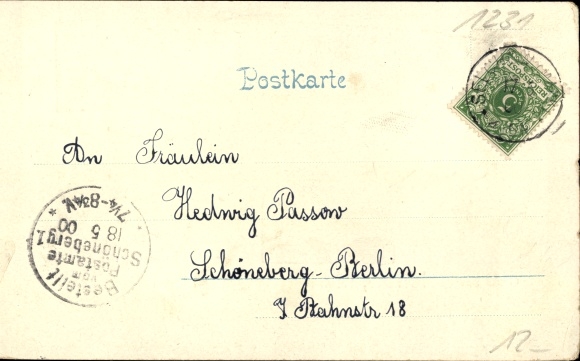 1231
Postkarte
An Fräulein
Hedwig Passow
Schöneberg-Berlin.
7 Bahnstr 18
Bestellt
vom
Postamte
Schöneberg 1
18 5 00
* 7¼-8¾V. *
REICHSPOST
5
12-